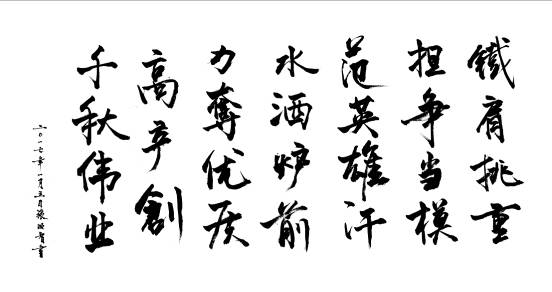 鐵肩挑重
担争当模
范英雄汗
水洒炉前
力奪优质
高产創
千秋伟业
二〇一七年一月五日張書